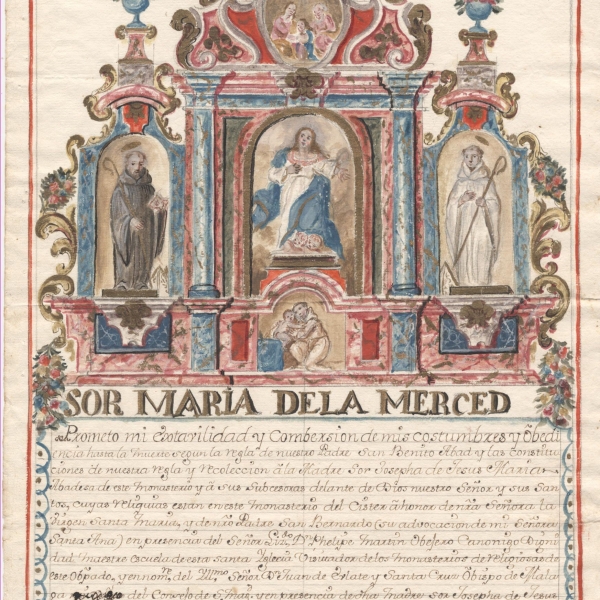 SOR MARIA DELA MERCED
Prometo mi Estavilidad y Combersion de mis costumbres y Obedi
encia hasta la muerte segun la regla de nuestro Padre San Benito Abad y las constitu
ciones de nuestra regla y Recoleccion â la Madre Sor Josepha de Jesus Maria
Abadesa de este Monasterio y â sus Subcesoras delante de Dios nuestro Señor y sus San
tos, cuyas Reliquias estan en este Monasterio del Cister â honor de nra Señora la
Virgen Santa Maria, y de nro Padre San Bernardo (su advocacion de mi Señora
Santa Ana) en presencia del Señor Lizdo Dn Phelipe Martin Canonigo Digni
dad Maestre Escuela de esta Santa Yglesia Visitador de los Monasterios de Religiosas de
este Obpado, y en nomre del Yllmo Señor Dn Juan de Eulate y Santa Cruz Obispo de Mala
ga del Consejo de S. Mag. y en presencia de dha Madre Sor Josepha de Jesus